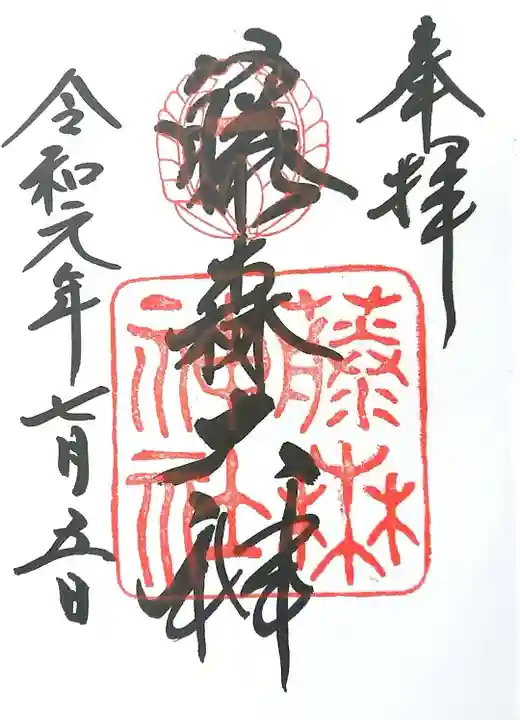 奉拝
藤森大神
令和元年七月五日
藤森
神社